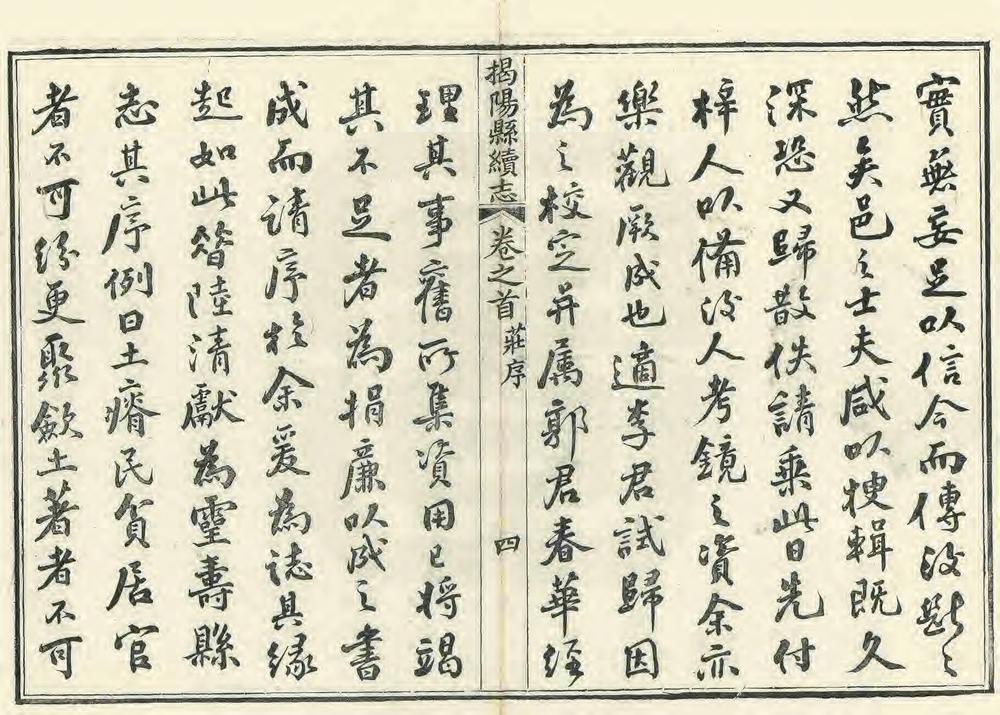 實無妄足以信今而傳後斷〻
然矣邑之士夫咸以輯既久
深恐又歸散佚請乘此日先付
梓人以備後人考鏡之資余亦
樂觀厥成也適李君試歸因
為之校定并属郭君春華經
揭陽縣續志 卷之首 莊序 四
理其事舊所集資用已將竭
其不足者為捐廉以成之書
成而請序於余爰為誌其緣
起如此昔陸清獻為靈壽縣
志其序例曰土瘠民貧居官
者不可紛更聚歛土著者不可